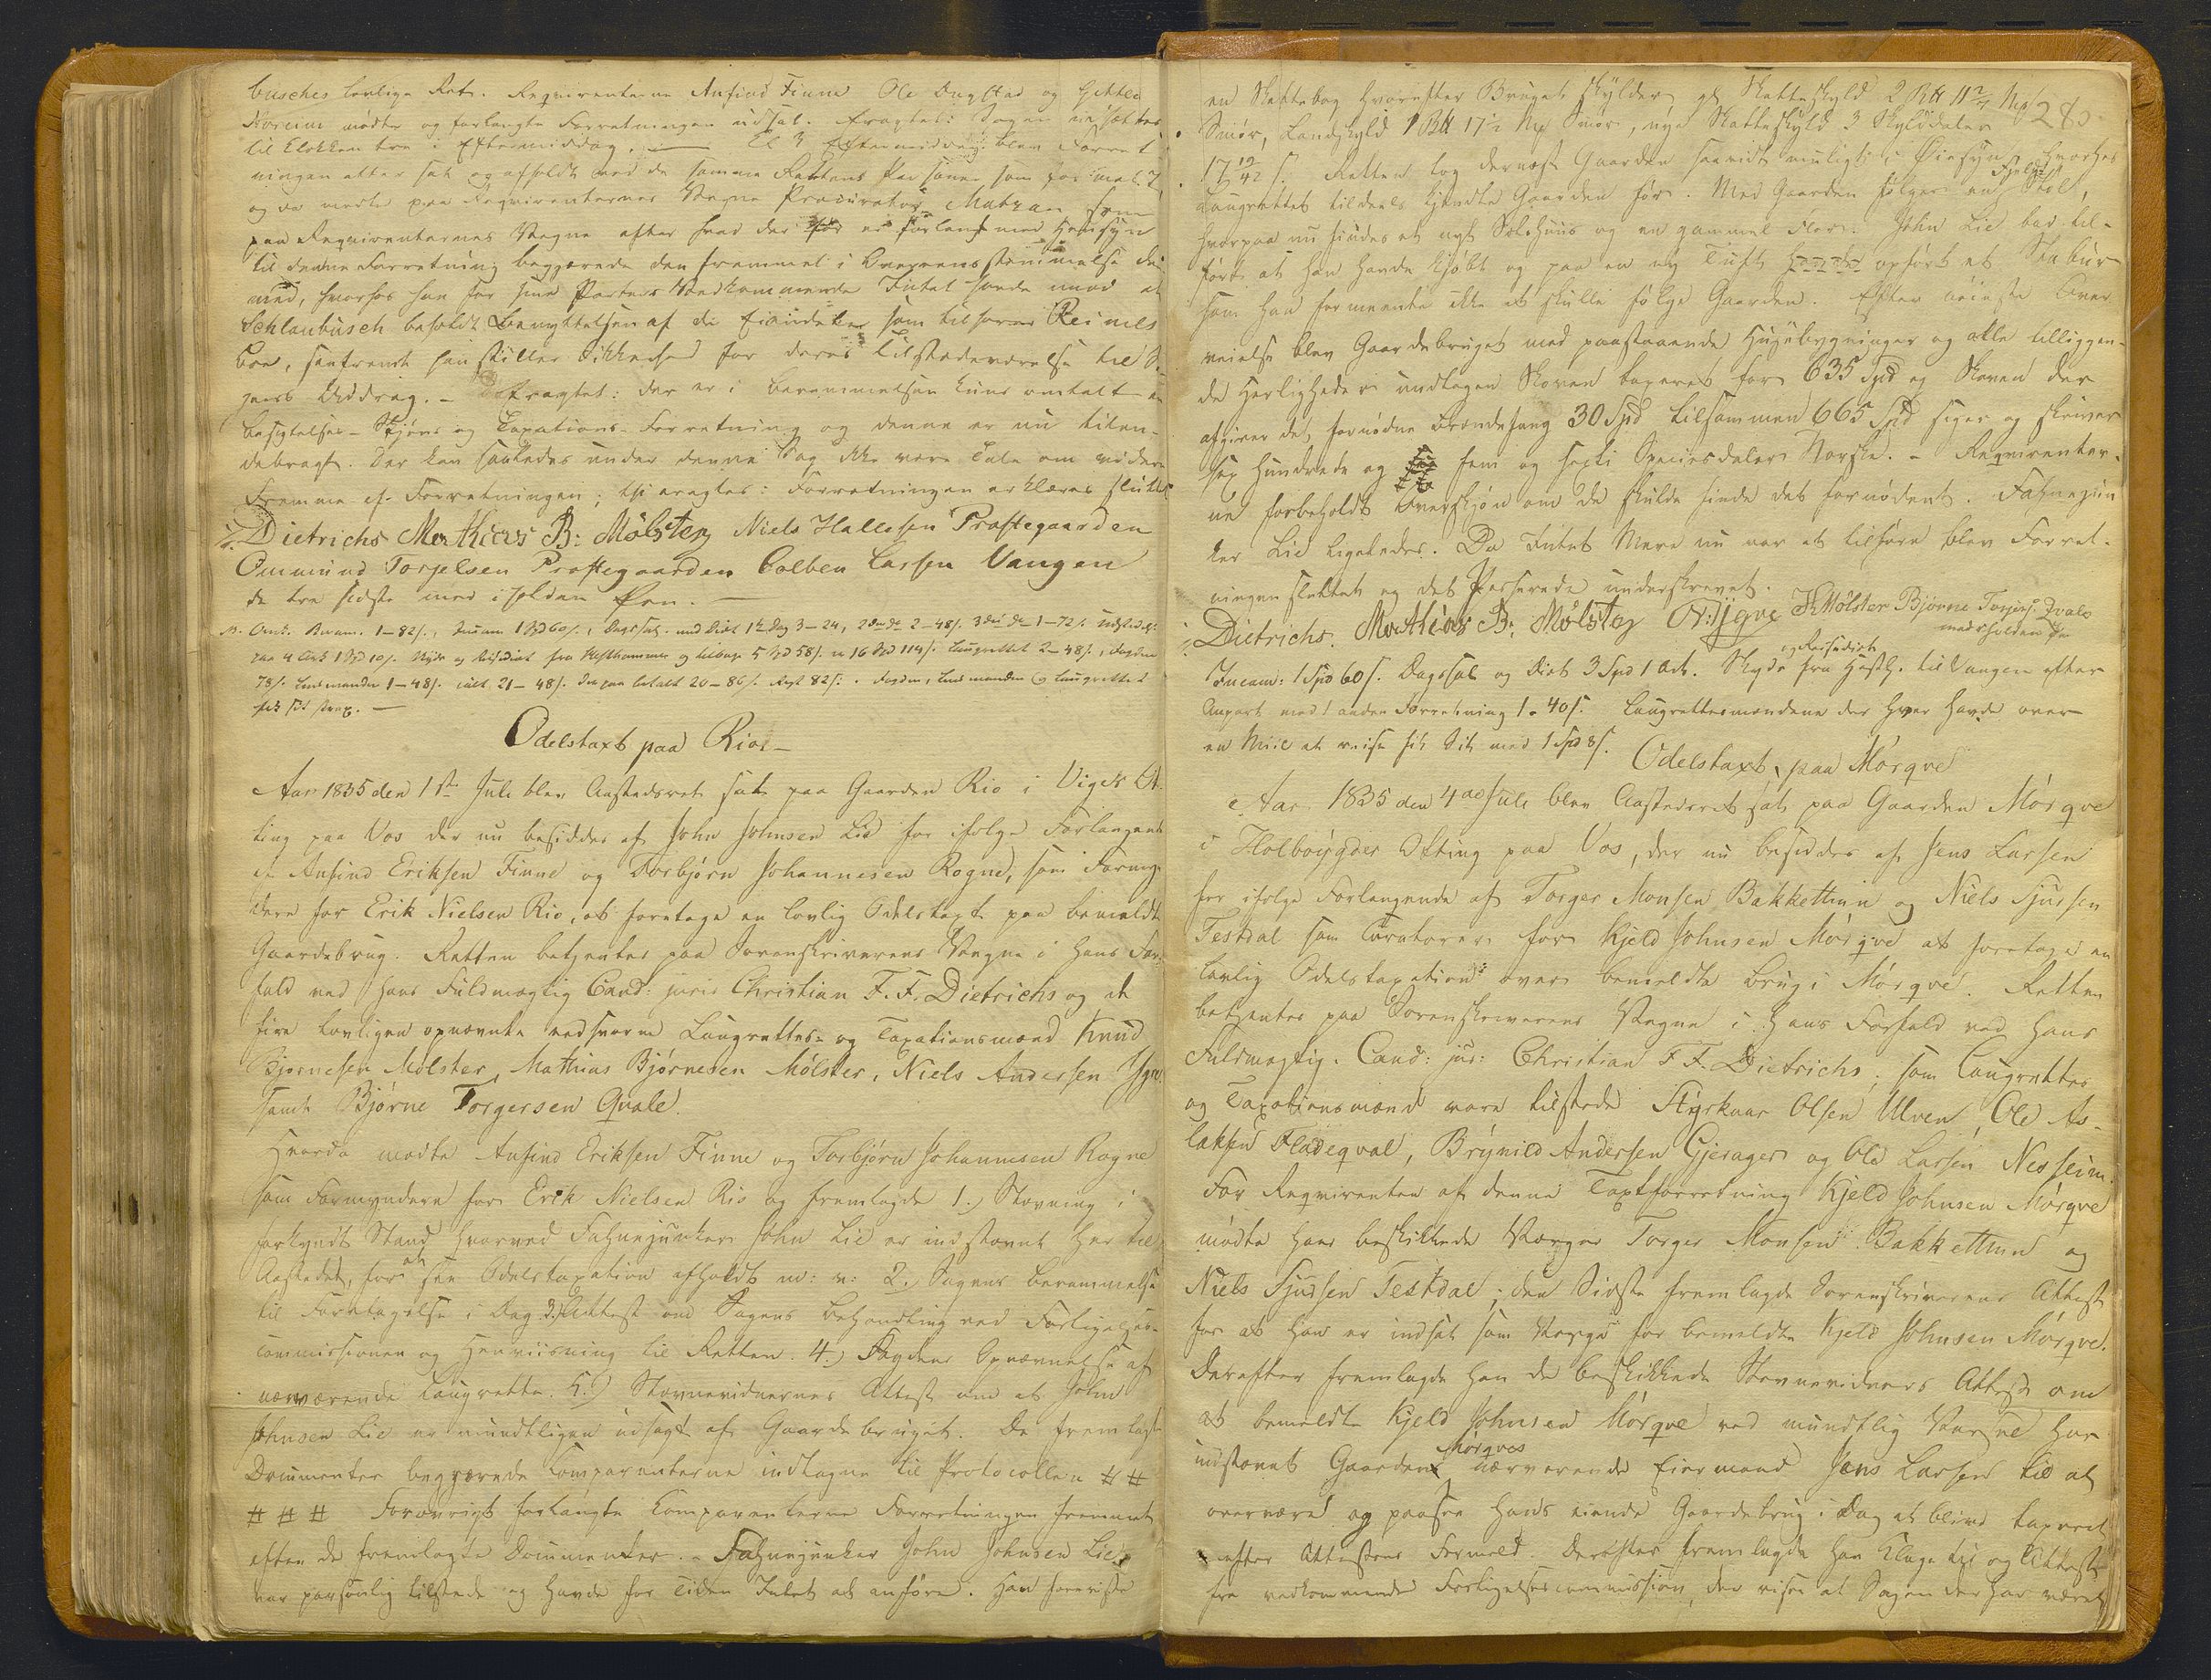 busches lovlige Ret. Reqvirenterne Anfind Finne Ole Dugstad og Gitle
Norum mødte og forlangte Forretningen udsat. Eragtet: Sagen udsættes
til Klokken tre i Eftermiddag. — Kl 3 Eftermiddag blev Forret
ningen atter sat og afholdt med de samme Rettens Personer som
og da mødte paa Reqvirenternes Vegne Procurator Matzau som
paa Reqvirenternes Vegne efter hvad der er med Hensyn
til denne Forretning begjærede den fremmet i Overensstemmelse der
med, hvorhos han for sine Parters Vedkommende Intet havde imod at
Schlanbusch beholdt Benyttelsen af de Eiendele som tilhører Reimers
Boe, saafremt han stiller Sikkerhed for deres Tilstedeværelse til
Uddrag. – Eragtet: der er i Berammelsen kuns omtalt en
Besigtelses- Skjøns og Taxations-Forretning og denne er nu tilen-
debragt. Der kan saaledes under denne Sag ikke være Tale om videre
Fremme af Forretningen; thi eragtes: Forretningen erklæres sluttet
Dietrichs Mathias B: Mølster Niels Hallesen Præstegaarden
Ommund Torjelsen Præstegaarden Colben Larsen Vangen
de tre sidste med iholden Pen. —
Beram. 1–82/., Incam 1 Spd 60/., Dagsal. med Diæt 1ste Dag 3–24, 2den do 2–48/. 3die do 1–72/.
4 Ark 1 Spd 10/. Skyds og fra Hesthammer og tilbage 5 Spd 58/. er 16 Spd 114/. Laugrettet 2–48/.,
78/. Lensmanden 1–48/. ialt 21–48/. betalt 20–86/. Rest 82/. Lensmanden og Laugrettet
fik sit strax. —
Odelstaxt paa Rio.–
Aar 1835 den 1ste Juli blev Aastedsret sat paa Gaarden Rio i Vigers Ot
ting paa Vos der nu besiddes af John Johnsen Lie for ifølge Forlangende
af Anfind Eriksen Finne og Torbjørn Johannesen Rogne, som Formyn
dere for Erik Nielsen Rio, at foretage en lovlig Odelstaxt paa bemeldte
Gaardebrug. Retten betjentes paa Sorenskriverens Vegne i hans For-
fald ved hans Fuldmægtig Cand: juris Christian F. F. Dietrichs og de
fire lovligen opnævnte edsvorne Laugrettes- og Taxationsmænd Knud
Bjørnesen Mølster, Mathias Bjørnesen Mølster, Niels Andersen Ygre
samt Bjørne Torgersen Qvale.
Hvorda mødte Anfind Eriksen Finne og Torbjørn Johannesen Rogne
som Formyndere for Erik Nielsen Rio og fremlagde 1.) Stevning i
forkyndt Stand hvorved Fahnejunker John Lie er indstevnt her til
Aastedet, for at see Odelstaxation afholdt m: v: 2. Sagens Berammelse
til Foretagelse i Dag 3.) Attest om Sagens Behandling ved Forligelses-
commissionen og Henviisning til Retten. 4.) Fogdens Opnævnelse af
nærværende Laugrette. 5.) Stevnevidnernes Attest om at John
Johnsen Lie er mundtligen udsagt af Gaardebruget. De fremlagte
Documenter begjærede Comparenterne indtagne til Protocollen # #
# # # Forøvrigt forlangte Comparenterne Forretningen fremmet
efter de fremlagte Documenter. – Fahnejunker John Johnsen Lie
var personlig tilstede og havde for Tiden Intet at anføre. Han foreviste
en Skattebog hvorefter Bruget skylder gl Skatteskyld 2 Mk
285.
Smør, Landskyld 1 17½ Mk Smør, nye Skatteskyld 3 Skylddaler
17 12/42 /. Retten tog dernæst Gaarden saavidt muligt i Øiesyn, hvorhos
Laugrettet tildeels kjendte Gaarden før. Med Gaarden følger en Fjeld Støl,
hvorpaa nu findes et nyt Sel-Huus og en gammel Floer. John Lie bad til-
ført at han havde kjøbt og paa en ny Tuft havde opført et Stabur
som han formeente ikke at skulle følge Gaarden. Efter nøieste Over
veielse blev Gaardebruget med paastaaende Huusbygninger og alle tilliggen-
de Herligheder undtagen Skoven taxeret for 635 Spd og Skoven der
afgiver det fornødne Brændefang 30 Spd tilsammen 665 Spd siger og skriver
sex hundrede og fem og sexti Speciesdaler Norske. – Reqvirenter-
ne forbeholdt Overskjøn om de skulde finde det fornødent. Fahnejun
ker Lie ligeledes. Da Intet Mere nu var at tilføre blev Forret-
ningen sluttet og det Passerede underskrevet.
Dietrichs. Mathias B: Mølster N: A: Ygre K Mølster Bjørne Torgers: Qvale
med iholden Pen
Incam: 1 Spd 60/. Dagsal og Diæt 3 Spd 1 Ort. Skyds og Reisediæt fra Hesth. til Vangen efter
Anpart med 1 anden Forretning 1–40/. Laugrettesmændene der hver havde over
en Miil at reise fik Sit med 1 Spd 8/.
Odelstaxt paa Mørqve
Aar 1835 den 4de Juli blev Aastedsret sat paa Gaarden Mørqve
i Holbøygder Otting paa Vos, der nu besiddes af Jens Larsen
for ifølge Forlangende af Torger Monsen Bakkethun og Niels Sjursen
Testdal som Curatorer for Kjeld Johnsen Mørqve at foretage en
lovlig Odelstaxation over bemeldte Brug i Mørqve. Retten
betjentes paa Sorenskriverens Vegne i hans Forfald ved hans
Fuldmægtig. Cand: jur: Christian F F. Dietrichs; som Laugrettes
og Taxationsmænd vare tilstede Styrkaar Olsen Ulven, Ole As-
laksen Fladeqval, Brynild Andersen Gjerager og Ole Larsen Nesheim.
For Reqvirenten af denne Taxtforretning Kjeld Johnsen Mørqve
mødte hans beskikkede Værger Torger Monsen Bakkethun og
Niels Sjursen Testdal; den Sidste fremlagde Sorenskriverens Attest
for at han er indsat som Værge for bemeldte Kjeld Johnsen Mørqve.
Derefter fremlagde han de beskikkede Stevnevidners Attest om
at bemeldte Kjeld Johnsen Mørqve ved mundtlig Varsel har
indstevnt Gaarden Mørqves nærværende Eiermand Jens Larsen til at
overvære og paasee hans eiende Gaardebrug i Dag at blive taxeret
efter Attestens Formeld. Derefter fremlagde han Klage til og Attest
fra vedkommende Forligelsescommission, der viser at Sagen der har været